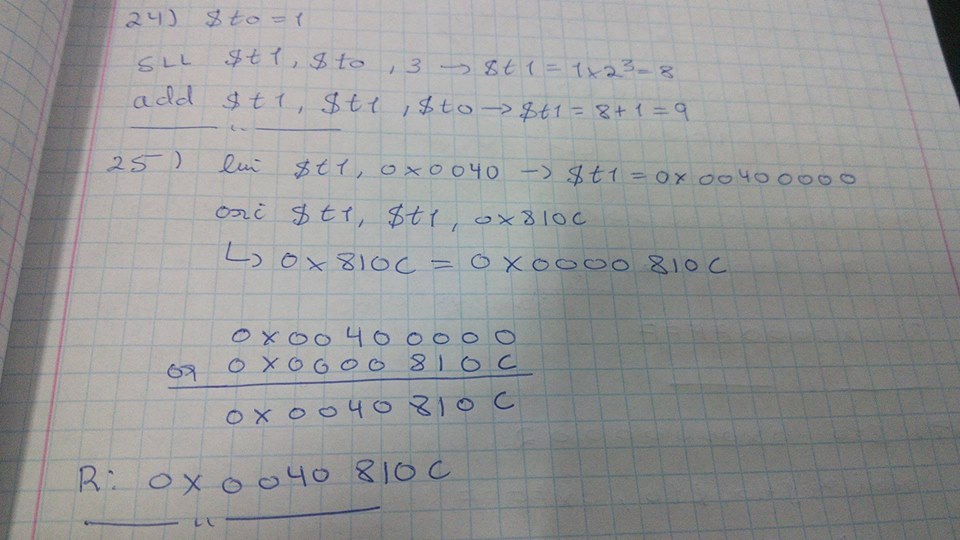 24) $t0 = 1
SLL $t1, $t0, 3 → $t1 = 1x2³ = 8
add $t1, $t1, $t0 → $t1 = 8+1 = 9
25) lui $t1, 0x0040 → $t1 = 0x00400000
ori $t1, $t1, 0x810C
↳ 0x810C = 0x0000810C
0x00400000
or 0x0000810C
0x0040810C
R: 0x0040810C